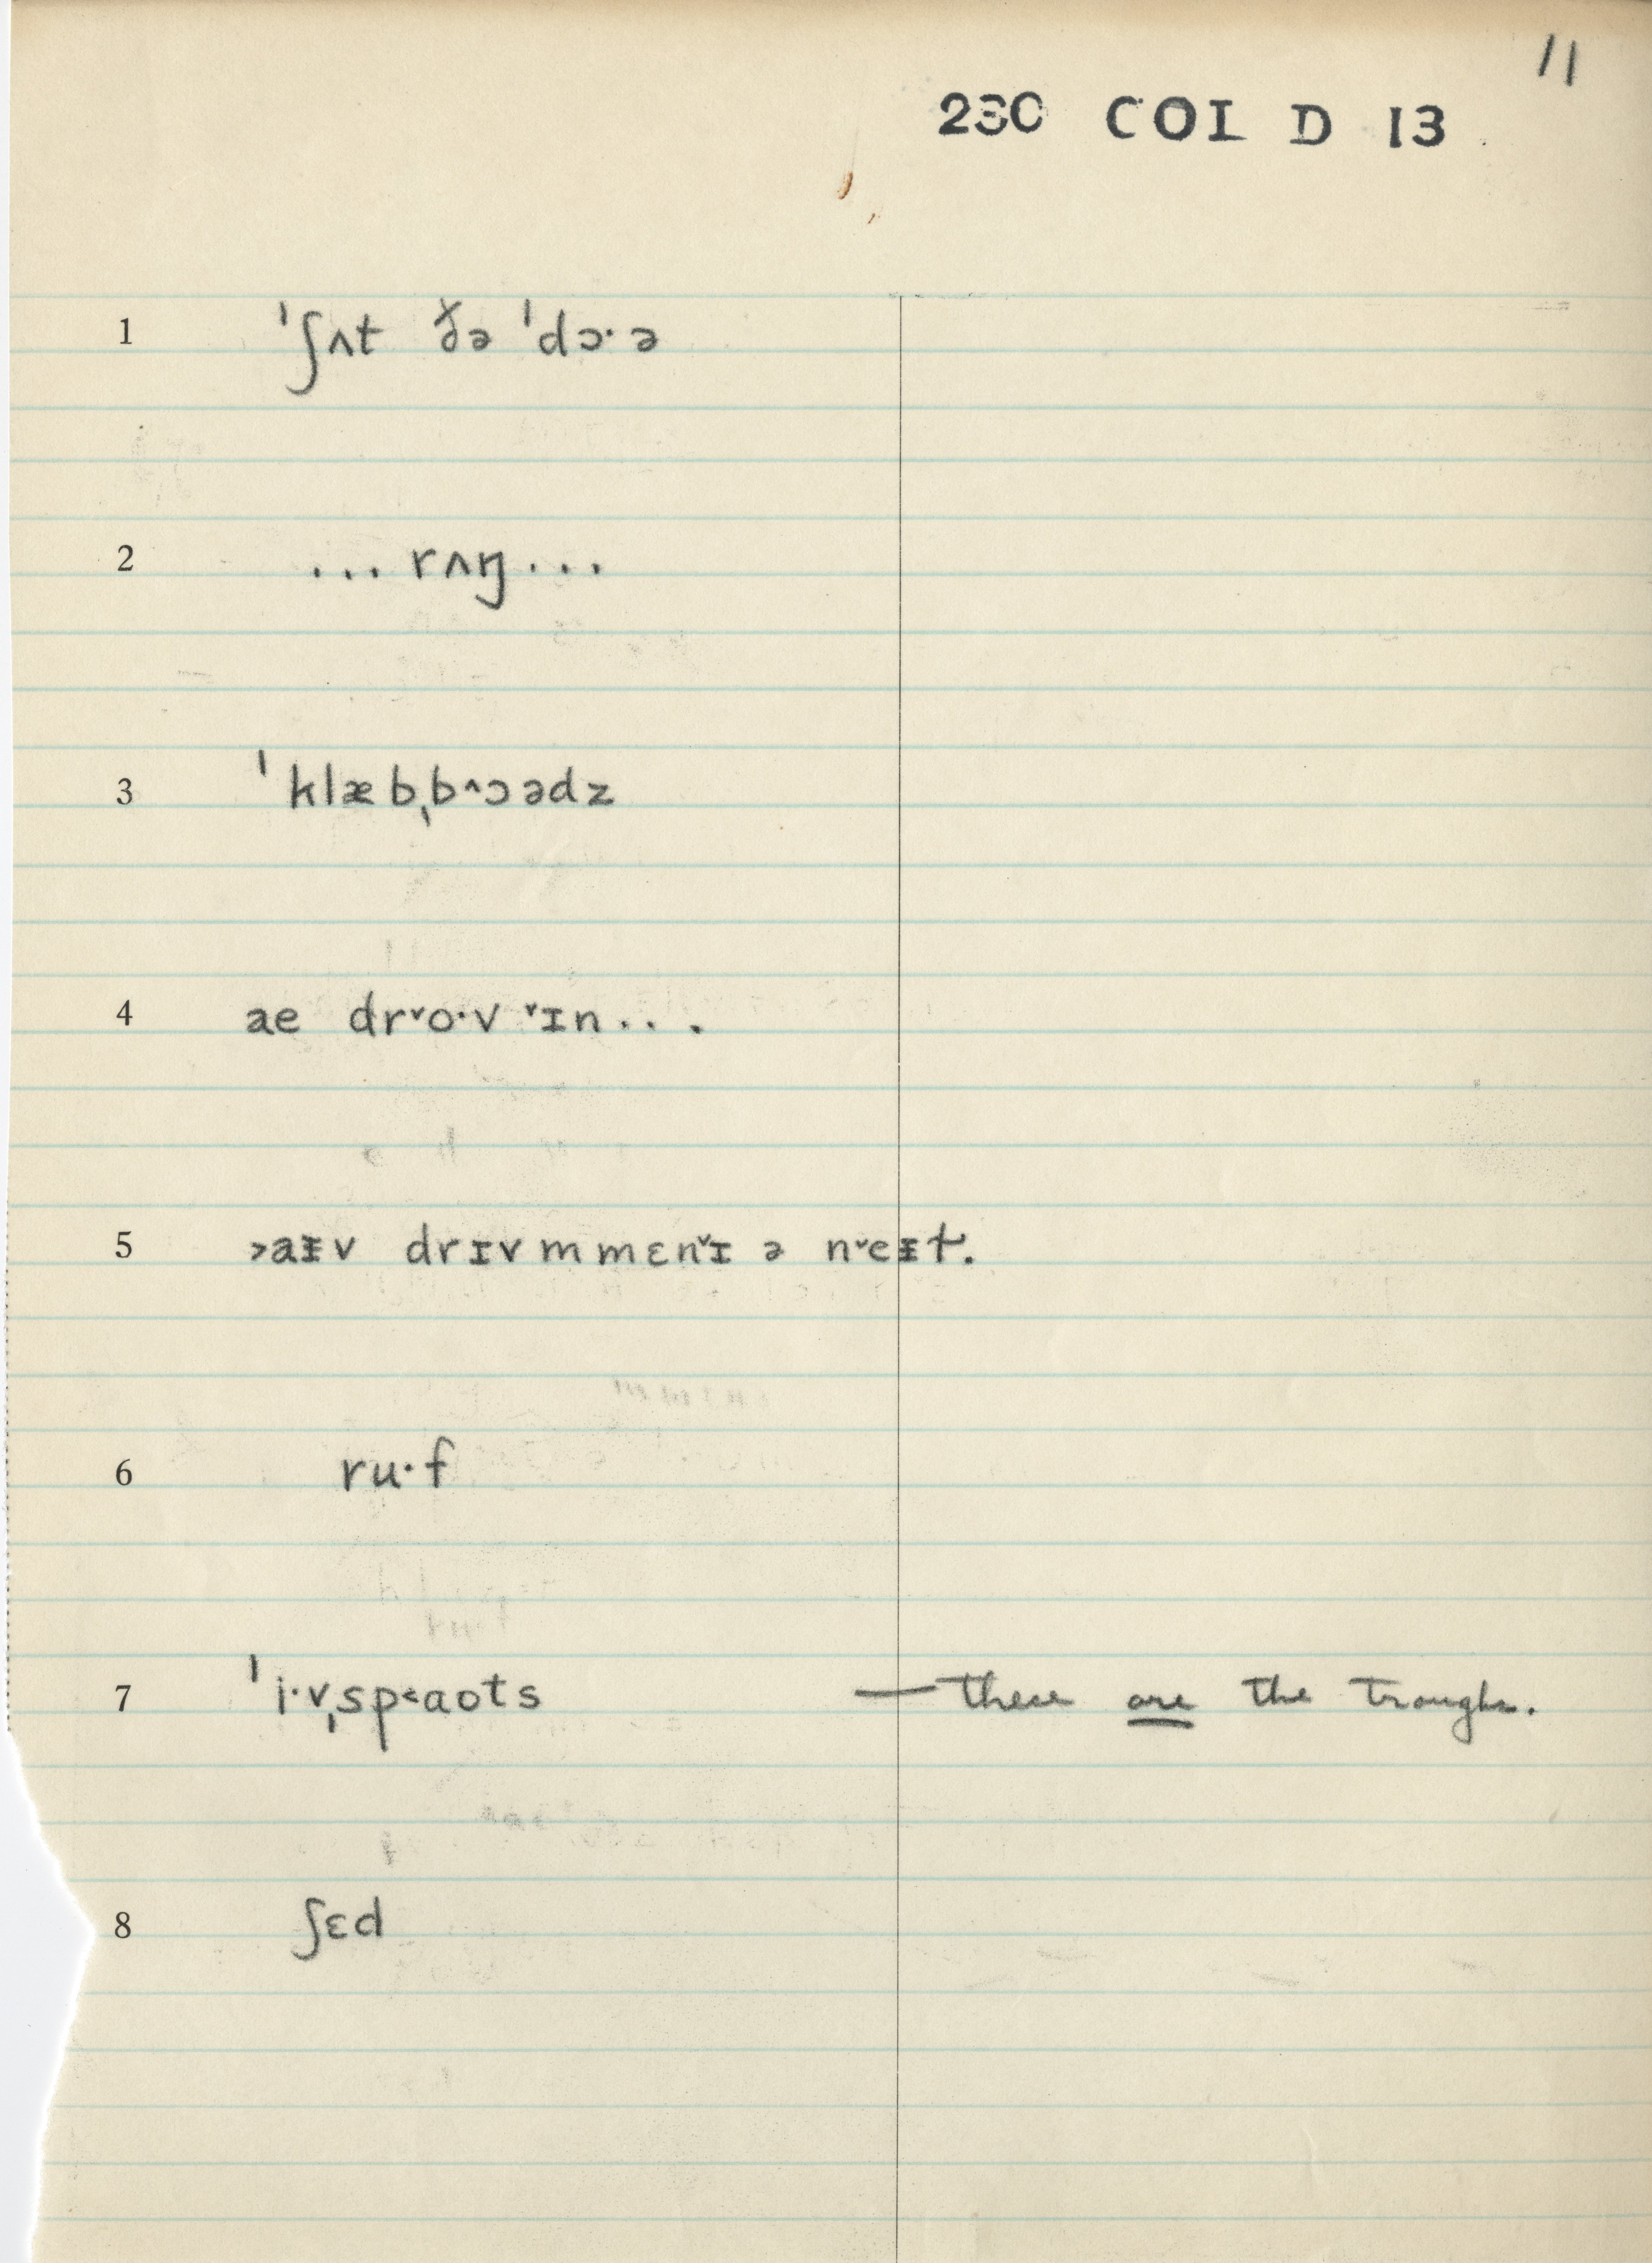 11
230 COL D 13
1 ˈʃʌt ðə ˈdɔ·ə
2 ... rʌŋ ...
3 ˈklæbˌb˄ɔədz
4 ae dr˅o·v ˅ɪn...
5 ˃aɪv drɪvmmɛn˅ɪ ə n˅eɪt.
6 ru·f
7 ˈi·vˌsp˂aots — these are the troughs.
8 ʃɛd